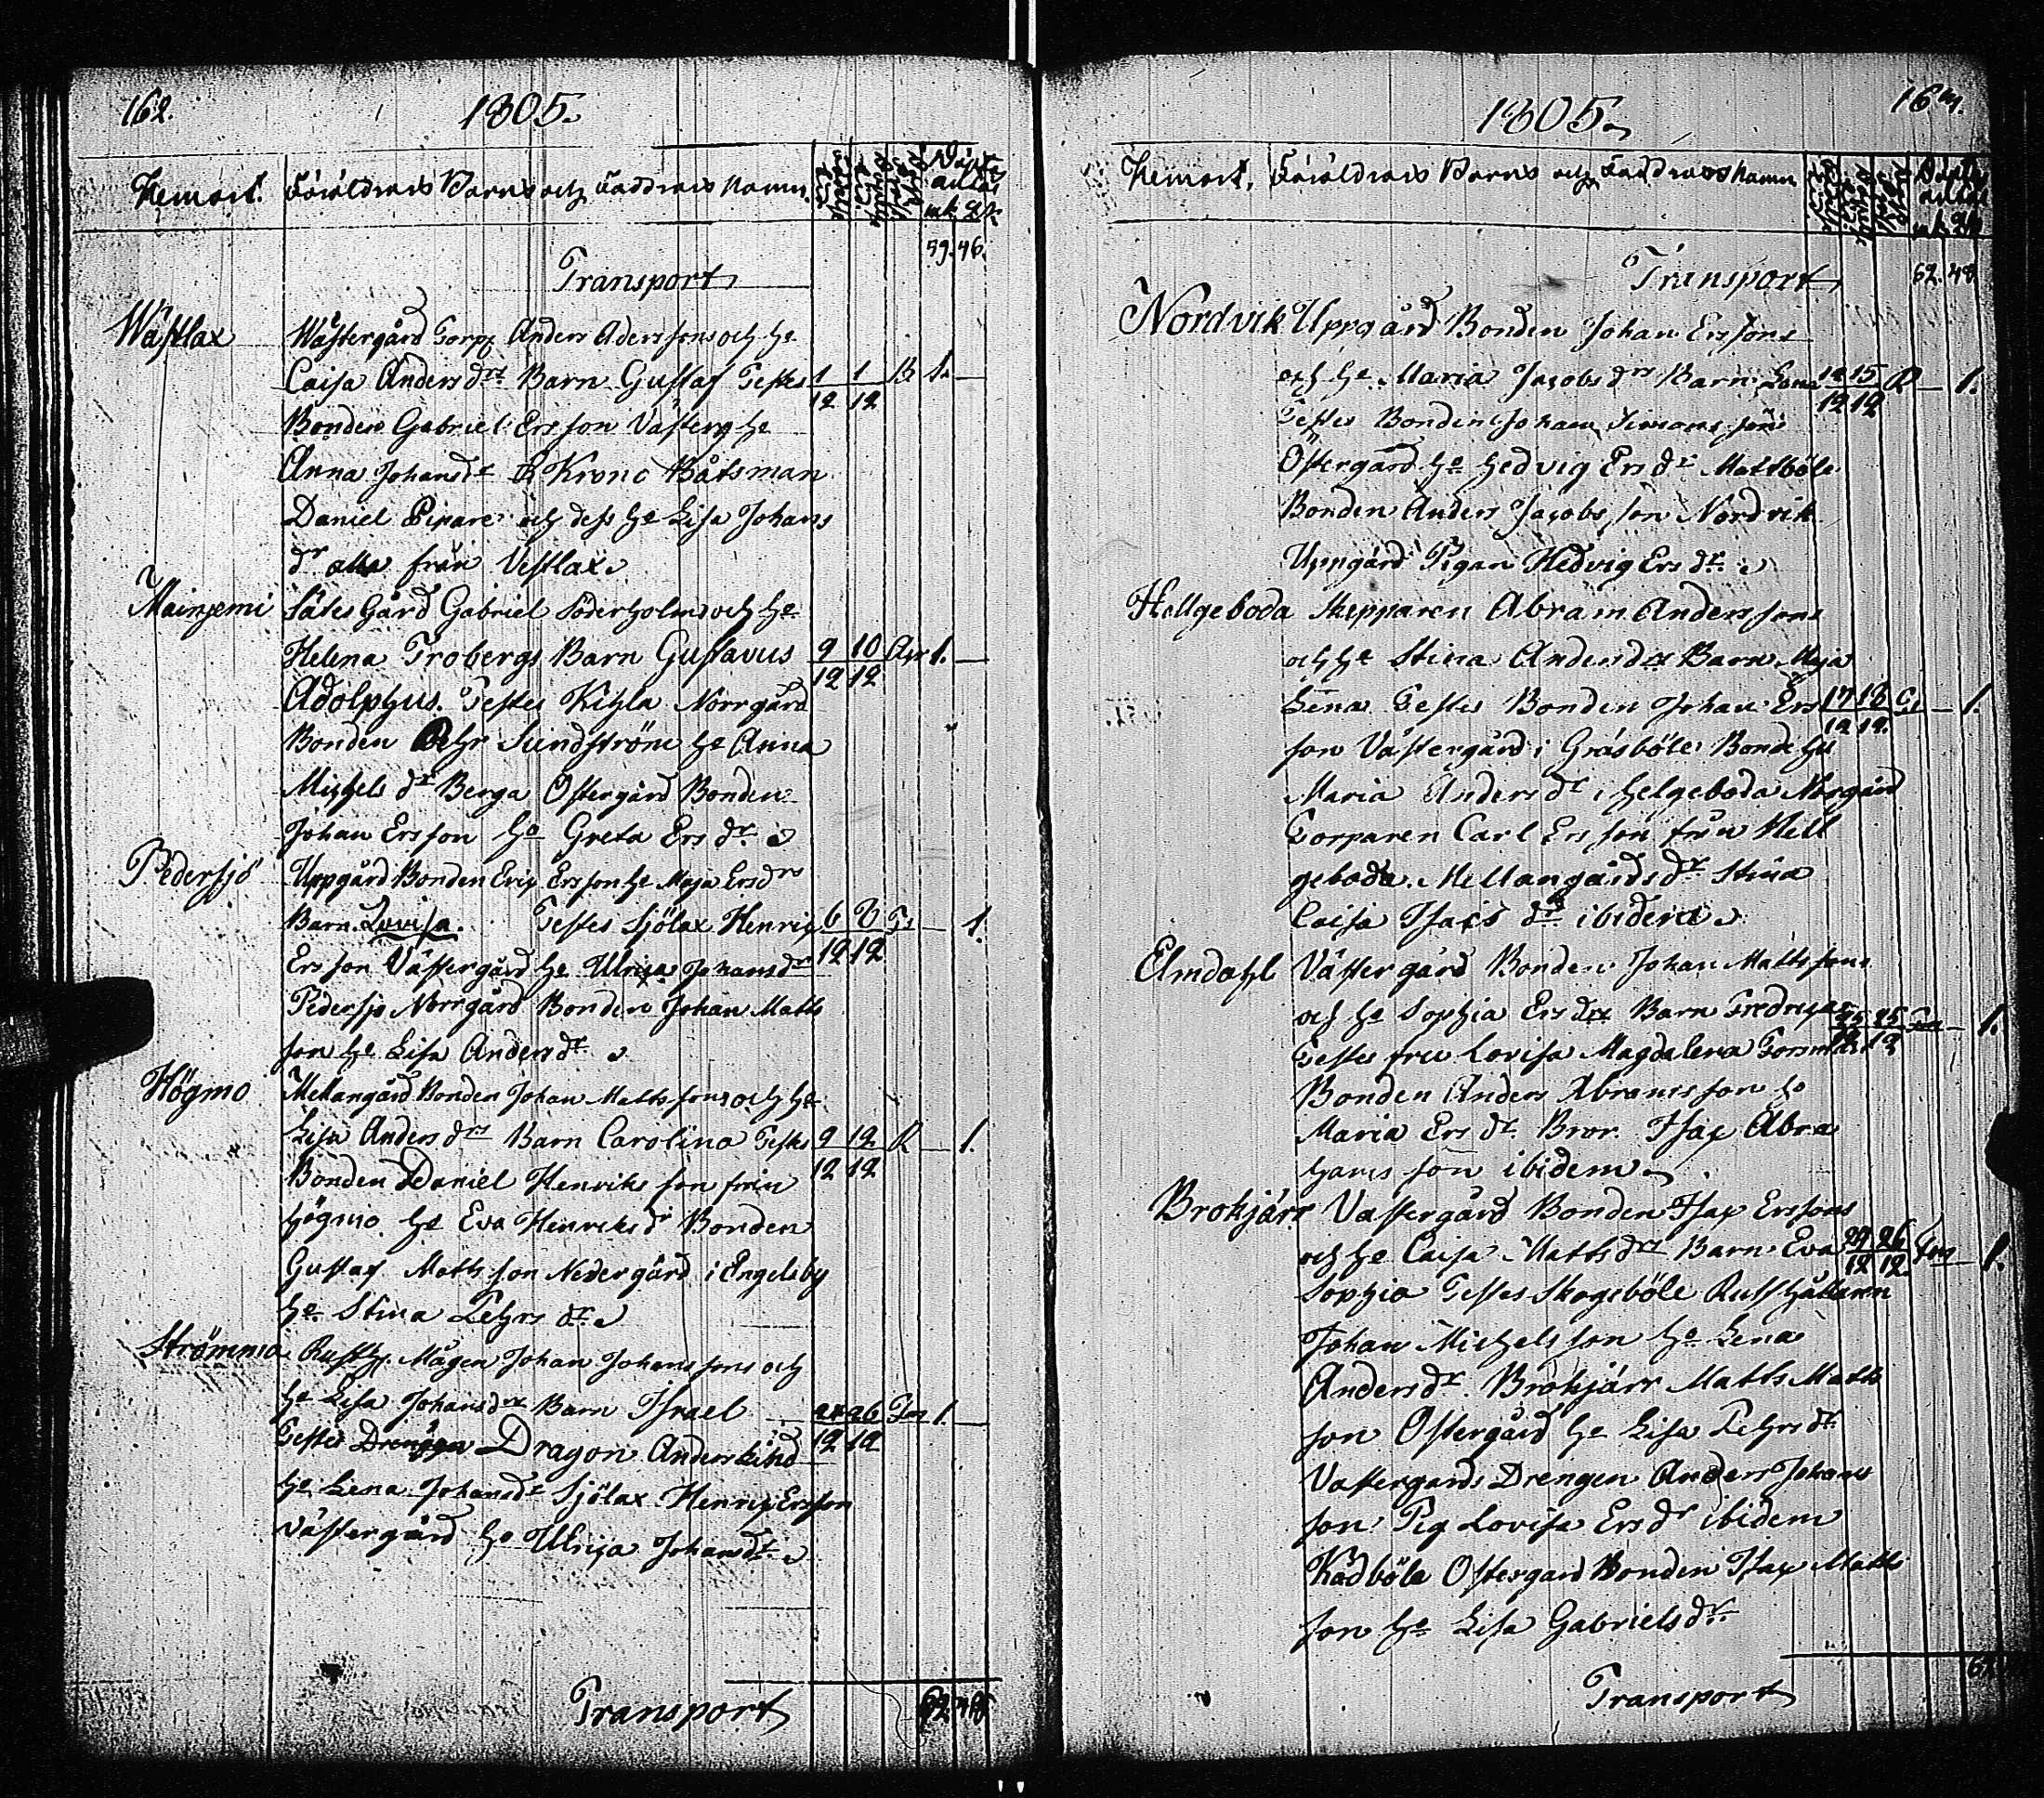 162.
1805.
Hemort. Föräldrars Barns och Faddrars Namn.
mk. qk.
59. 46.
Transport
Wästlax Wästergård Torp Anders Aderssons och he
Caisa Anders drs Barn Gustaf Testes 1 1 B 1. —
12 12
Bonden Gabriel Ersson Västerg he
Anna Johansdr Krono Båtsman
Daniel Pipare och dess he Lisa Johans
dr alla från Vestlax
Mainjemi Sätes Gård Gabriel Söderholms och he
Helena Trobergs Barn Gustavus 9 10 Apr 1. —
12 12
Adolphus. Testes Kihla Norrgård
Bonden Pehr Sundström he Anna
Michels dr Berga Östergård Bonden
Johan Ersson he Greta Ers dr
Pedersjö Uppgård Bonden Eric Ersson he Maja Ersdrs
Barn Lovisa. Testes Sjölax Henric 6 8 — 1.
12 12
Ersson Västergård he Ulrica Johansdr
Pedersjö Norrgård Bonden Johan Matts
son he Lisa Andersdr
Högmo Mellangård Bonden Johan Mattssons och he
Lisa Anders drs Barn Carolina Testes 9 12 R — 1.
12 12
Bonden Daniel Henriks son från
högmo he Eva Henriksdr Bonden
Gustaf Matts son Nedergård i Engelsby
he Stina Pehrs dr
Strömma Rusth. Mågen Johan Johanssons och
he Lisa Johansdrs Barn Israel 26 1. —
12 12
Testes Drengen Dragon Anders Lind
he Lena Johansdr Sjölax Henric Ersson
Västergård he Ulrica Johansdr
Transport 62 48
1805.
Hemort, Föräldrars Barns och Faddrars Namn
Transport 62. 48
Nordvik Uppgård Bonden Johan Erssons
och he Maria Jacobs drs Barn Lena 12 15 R — 1.
12 12
Testes Bonden Johan Simons son
Östergård he Hedvig Ers dr Mattböle
Bonden Anders Jacobs son Nordvik
Uppgård Pigan Hedvig Ers dr
Hellgeboda Skepparen Abram Anderssons
och he Stina Andersdrs Barn Maja
Lena Testes Bonden Johan Ers 17 18 — 1.
12 12.
son Västergård i Gräsböle Bonde hu
Maria Anders dr i helgeboda Norgård
Torparen Carl Ers son från Hell
geboda Mellangårds dr Stina
Caisa Isacs dr ibidem
Elmdahl Västergård Bonden Johan Mattssons
och he Sophia Ers drs Barn Fredrica 25 25 — 1.
12 12
Testes fru Lovisa Magdalena Forsman
Bonden Anders Abramsson he
Maria Ers dr. Bror. Isac Abra
hams son ibidem
Brokjärr Västergård Bonden Isac Erssons
och he Caisa Mattsdrs Barn Eva 24 26 — 1.
12 12.
Sophia Testes Skogsböle Rusthållarn
Johan Michels son he Lena
Andersdr. Brokjärr Matts Matts
son Östergård he Lisa Pehrsdr
Vastergards Drengen Anders Johans
son Pig Lovisa Ersdr ibidem
Kadböle Ostergard Bonden Isac Matts
son he Lisa Gabrielsdr
Transport